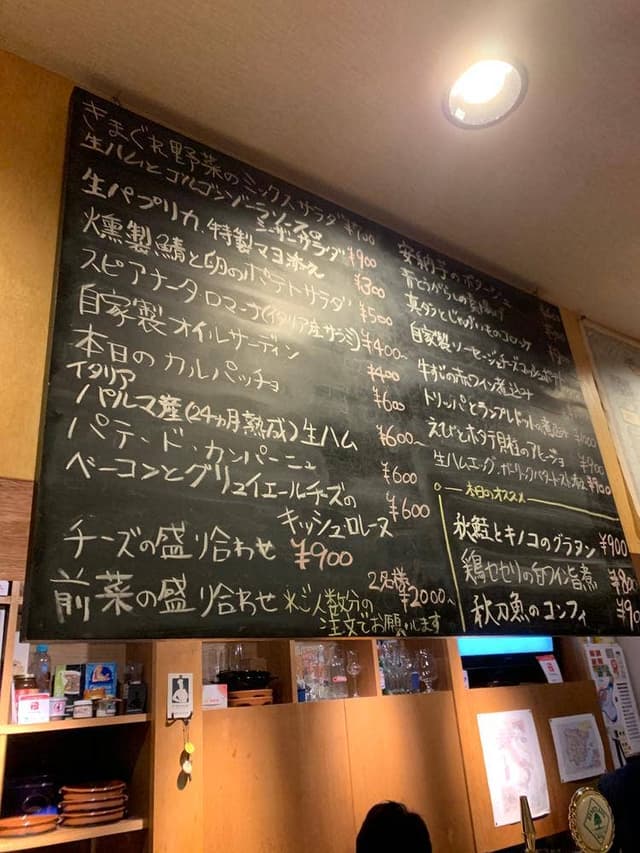 きまぐれ野菜のミックスサラダ ¥700
生ハムとゴルゴンゾーラソースの
シーザーサラダ ¥900
生パプリカ 特製マヨ添え ¥300
燻製鯖と卵のポテトサラダ ¥500
スピアナータ ロマーナ(イタリア産サラミ) ¥400~
自家製オイルサーディン ¥400
本日のカルパッチョ ¥600
イタリア
パルマ産(24ヵ月熟成)生ハム ¥600~
パテ・ド・カンパーニュ ¥600
ベーコンとグリュイエールチーズの
キッシュロレーヌ ¥600
チーズの盛り合わせ ¥900
前菜の盛り合わせ 2名様 ¥2000~
※ご人数分の
注文でお願いします
安納芋のポタージュ
青とうがらしの
真ダラとじゃがいものコロッケ
自家製ソーセージ
牛すじの赤ワイン煮込み
トリッパとランプレドットの煮込み
えびとホタテ貝柱のアヒージョ
生ハムエッグ ガーリックバタートースト添え
本日のオススメ
秋鮭とキノコのグラタン ¥900
鶏セセリの白ワイン煮 ¥800
秋刀魚のコンフィ